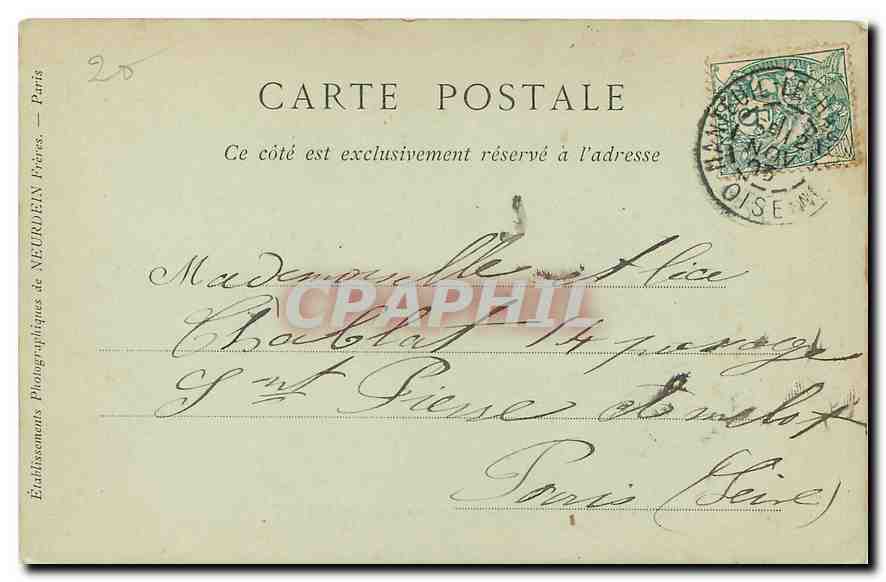 20
CARTE POSTALE
Ce côté est exclusivement réservé à l'adresse
NANTEUIL-LE-H
NOV
OISE
Mademoiselle Alice
Chablat 14 passage
Snt Pierre Amelot
Paris (Seine)
CPAPHIL
Établissements Photographiques de NEURDEIN Frères. — Paris